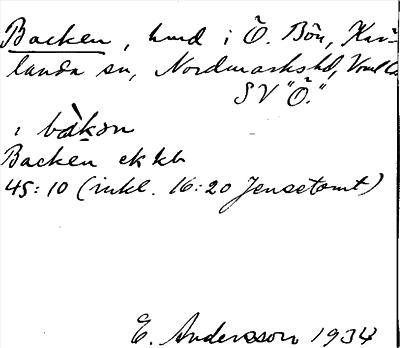 Backen, hmd i Ö. Bön, Kar-
landa sn, Nordmarks hd, Vrml
SV "Ö."
i bàkən
Backen ek kb
45:10 (inkl. 16:20 Jensetomt)
E. Andersson 1934